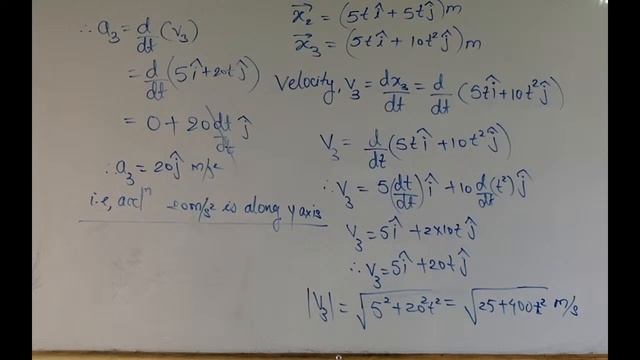 ∴ a₃ = d/dt (v₃)
= d/dt (5î + 20t ĵ)
= 0 + 20 dt/dt ĵ
∴ a₃ = 20ĵ m/s²
i.e, accⁿ 20m/s² is along y axis
x⃗₂ = (5t î + 5t ĵ) m
x⃗₃ = (5t î + 10t² ĵ) m
Velocity, v₃ = dx₃/dt = d/dt (5t î + 10t² ĵ)
V₃ = d/dt (5t î + 10t² ĵ)
∴ V₃ = 5(dt/dt) î + 10 d/dt (t²) ĵ
V₃ = 5î + 2×10t ĵ
∴ V₃ = 5î + 20t ĵ
|V₃| = √(5² + 20²t²) = √(25 + 400t²) m/s